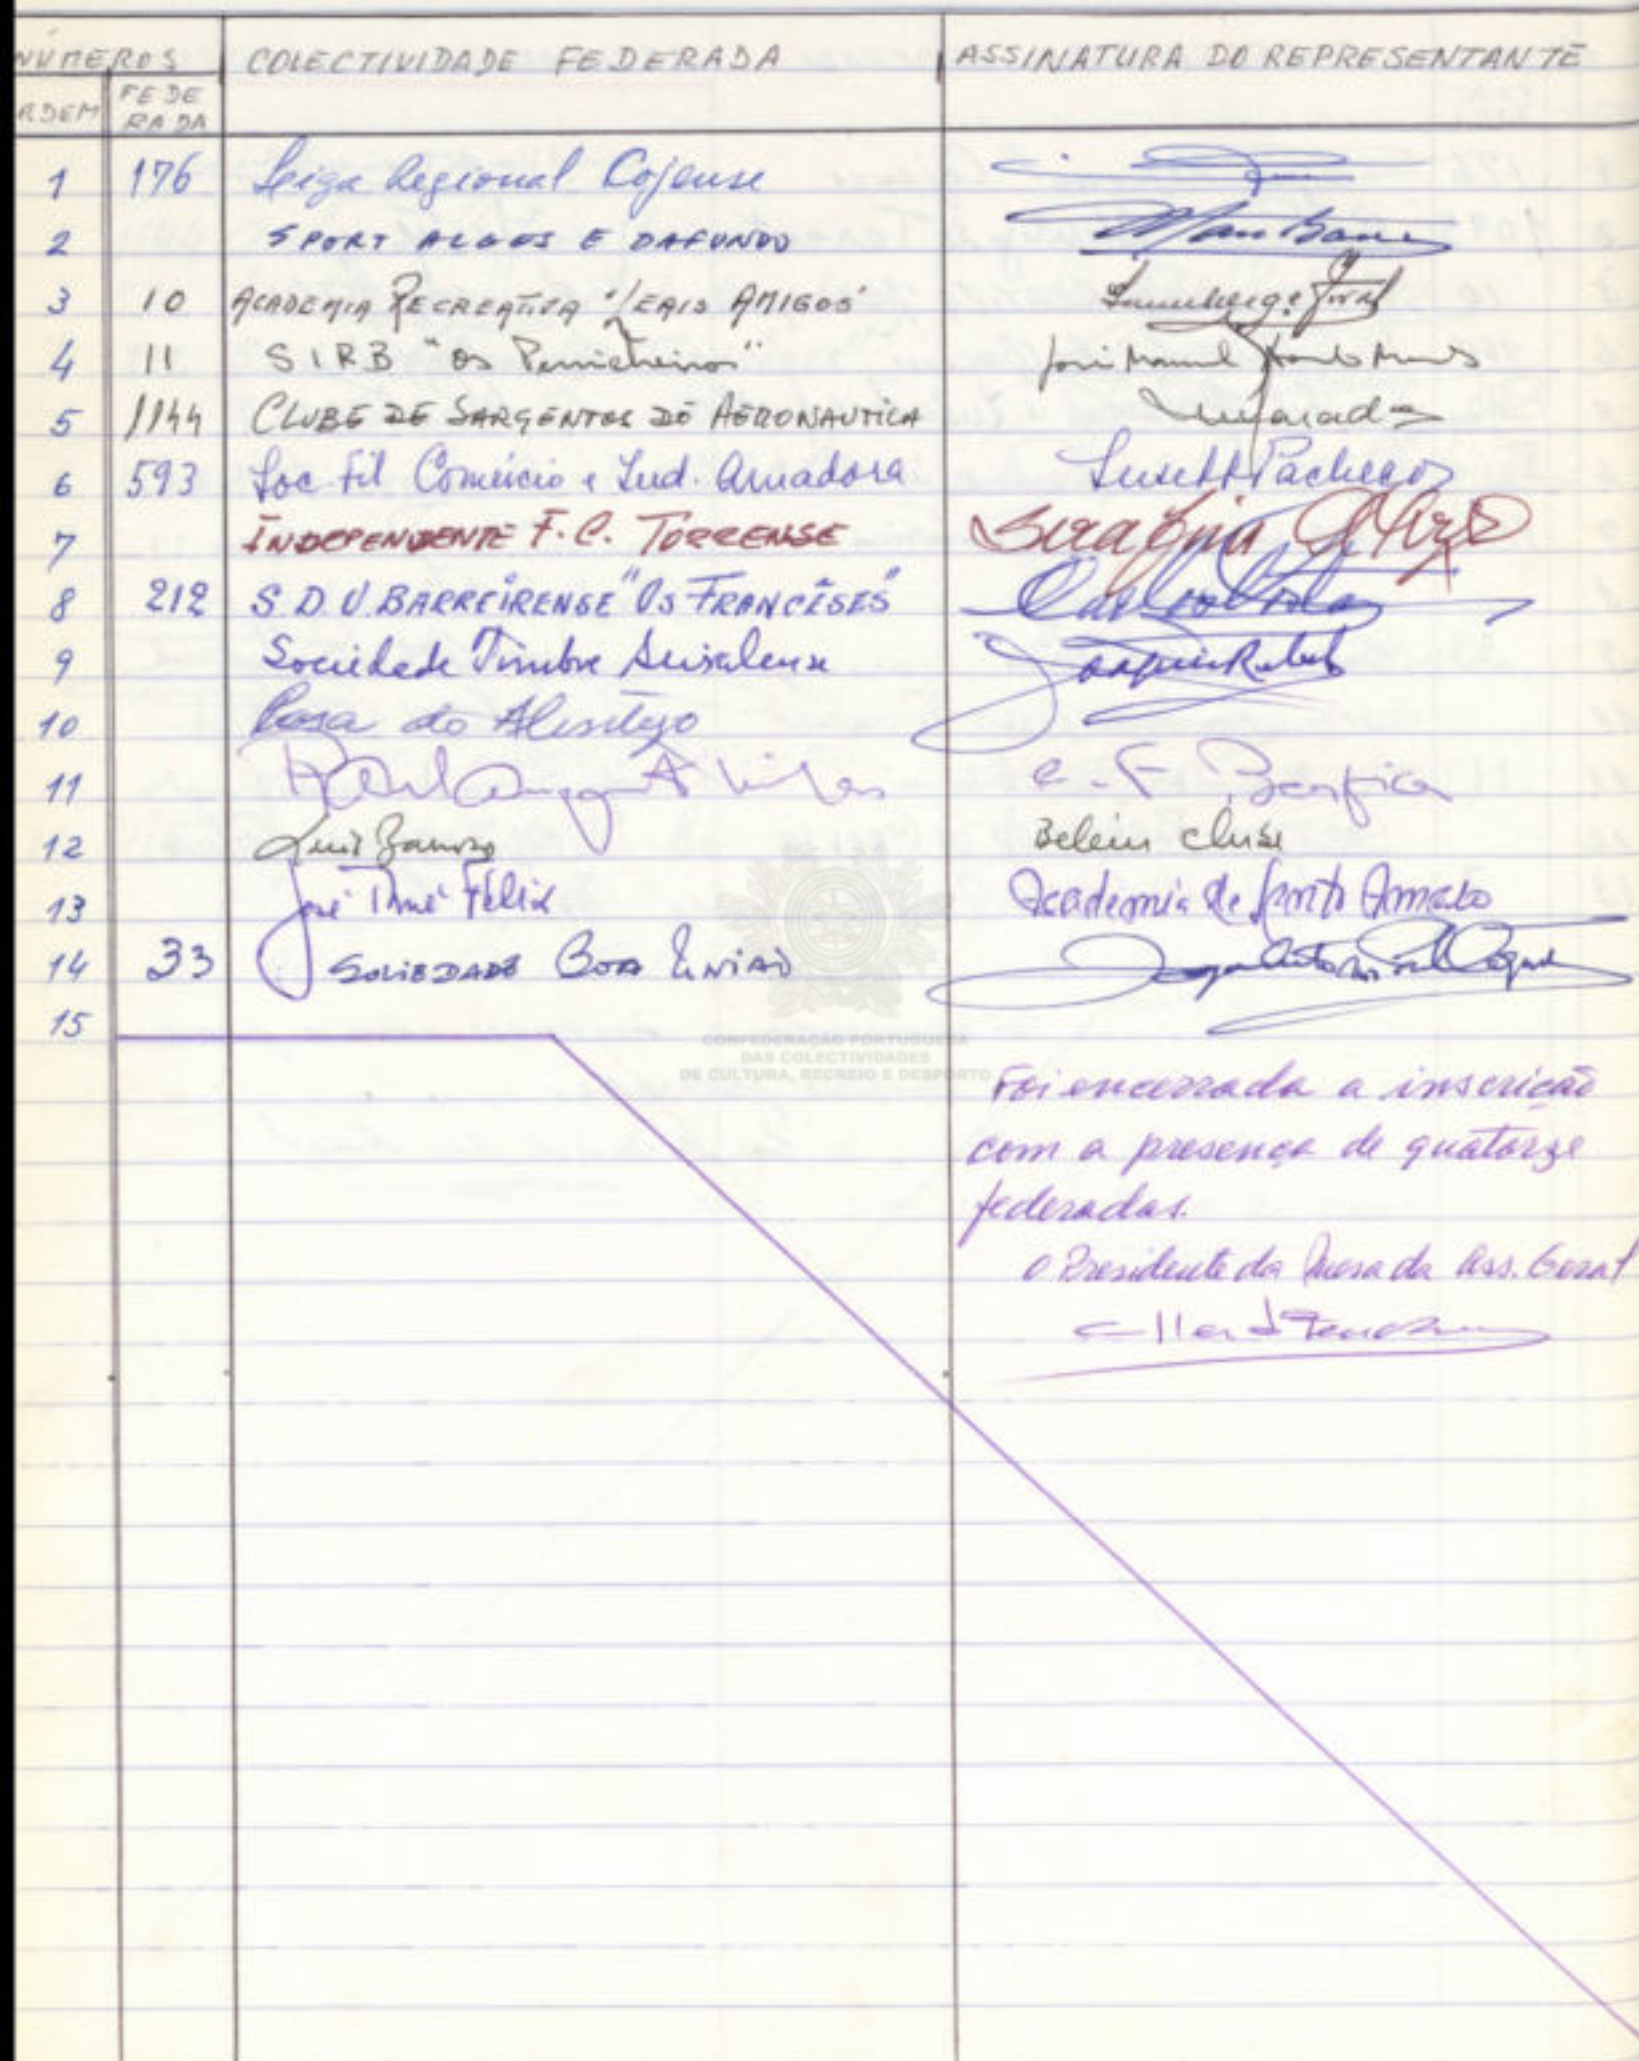 NÚMEROS COLECTIVIDADE FEDERADA ASSINATURA DO REPRESENTANTE
RDEM FEDE
RADA
1 176 Leiga Regional Cojense
2 SPORT ALGES E DAFUNDO
3 10 ACADEMIA RECREATIVA "LEAIS AMIGOS"
4 11 SIRB "Os Penicheiros" José Manuel
5 1144 CLUBE DE SARGENTOS DE AERONAUTICA
6 593 Soc Fil Comércio e Ind. Amadora Lusett Pacheco
7 INDEPENDENTE F. C. TORRENSE Serafim
8 212 S. D. U. BARREIRENSE "OS FRANCÊSES"
9 Sociedade Timbre Seixalense Joaquim
10 Casa do Alentejo
11 C. F. Benfica
12 Luis Belem clube
13 José Tomé Félix Academia de Santo Amaro
14 33 SOCIEDADE BOA UNIÃO
15
CONFEDERAÇÃO PORTUGUESA
DAS COLECTIVIDADES
DE CULTURA, RECREIO E DESPORTO
Foi encerrada a inscrição
com a presença de quatorze
federadas.
O Presidente da Mesa da Ass. Geral